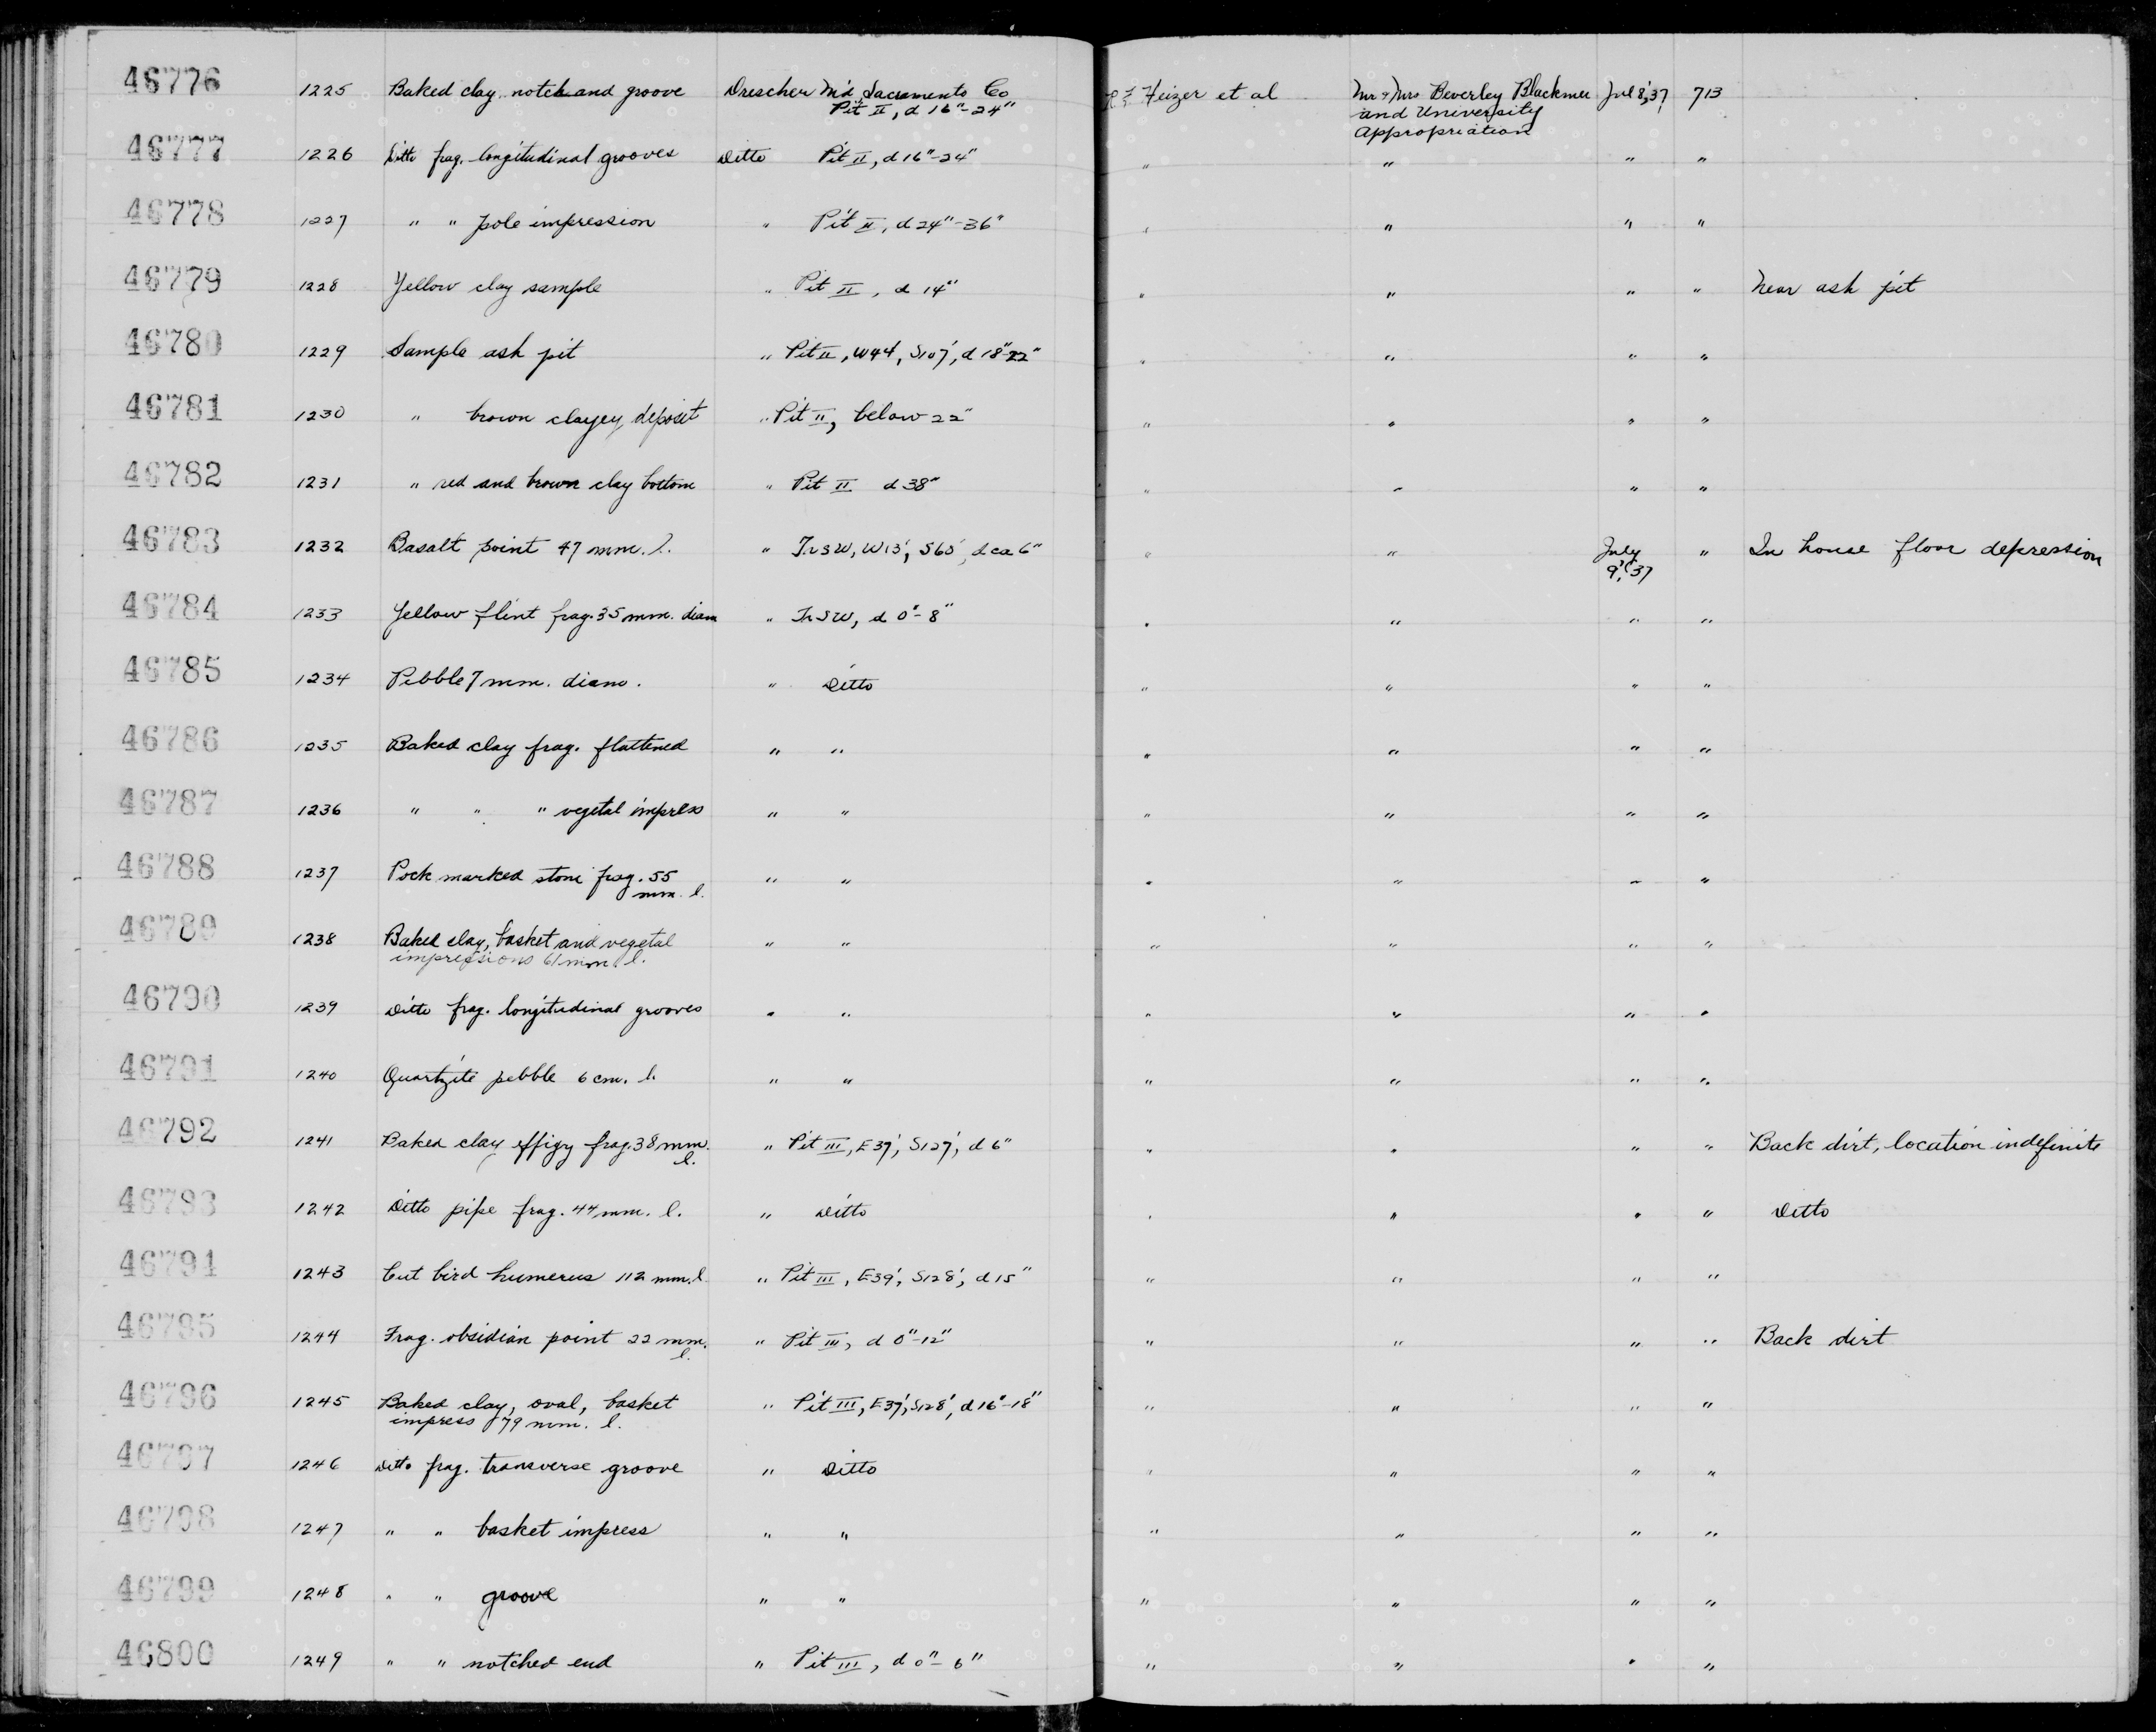 46776 1225 Baked clay, notch and groove Drescher M'd Sacramento Co R F Heizer et al Mr & Mrs Beverley Blackmer Jul 8, '37 713
Pit II, d 16"-24" and University
Appropriation
46777 1226 Ditto frag. longitudinal grooves Ditto Pit II, d 16"-24" " " " "
46778 1227 " " pole impression " Pit II, d 24"-36" " " " "
46779 1228 Yellow clay sample " Pit II, d 14" " " " " Near ash pit
46780 1229 Sample ash pit " Pit II, W44', S107', d 18"-22" " " " "
46781 1230 " brown clayey deposit " Pit II, below 22" " " " "
46782 1231 " red and brown clay bottom " Pit II d 38" " " " "
46783 1232 Basalt point 47 mm. l. " Tr SW, W13', S65', d ca 6" " " July " In house floor depression
9, '37
46784 1233 Yellow flint frag. 35 mm. diam " Tr SW, d 0"-8" " " " "
46785 1234 Pebble 7 mm. diam. " Ditto " " " "
46786 1235 Baked clay frag. flattened " " " " " "
46787 1236 " " " vegetal impress " " " " " "
46788 1237 Pock marked stone frag. 55 " " " " " "
mm. l.
46789 1238 Baked clay, basket and vegetal " " " " " "
impressions 61 mm. l.
46790 1239 Ditto frag. longitudinal grooves " " " " " "
46791 1240 Quartzite pebble 6 cm. l. " " " " " "
46792 1241 Baked clay effigy frag. 38 mm. " Pit III, E37', S127', d 6" " " " " Back dirt, location indefinite
l.
46793 1242 Ditto pipe frag. 44 mm. l. " Ditto " " " " Ditto
46794 1243 Cut bird humerus 112 mm. l. " Pit III, E39', S128', d 15" " " " "
46795 1244 Frag. obsidian point 22 mm. " Pit III, d 0"-12" " " " " Back dirt
l.
46796 1245 Baked clay, oval, basket " Pit III, E37', S128', d 16"-18" " " " "
impress 79 mm. l.
46797 1246 Ditto frag. transverse groove " Ditto " " " "
46798 1247 " " basket impress " " " " " "
46799 1248 " " groove " " " " " "
46800 1249 " " notched end " Pit III, d 0"-6" " " " "